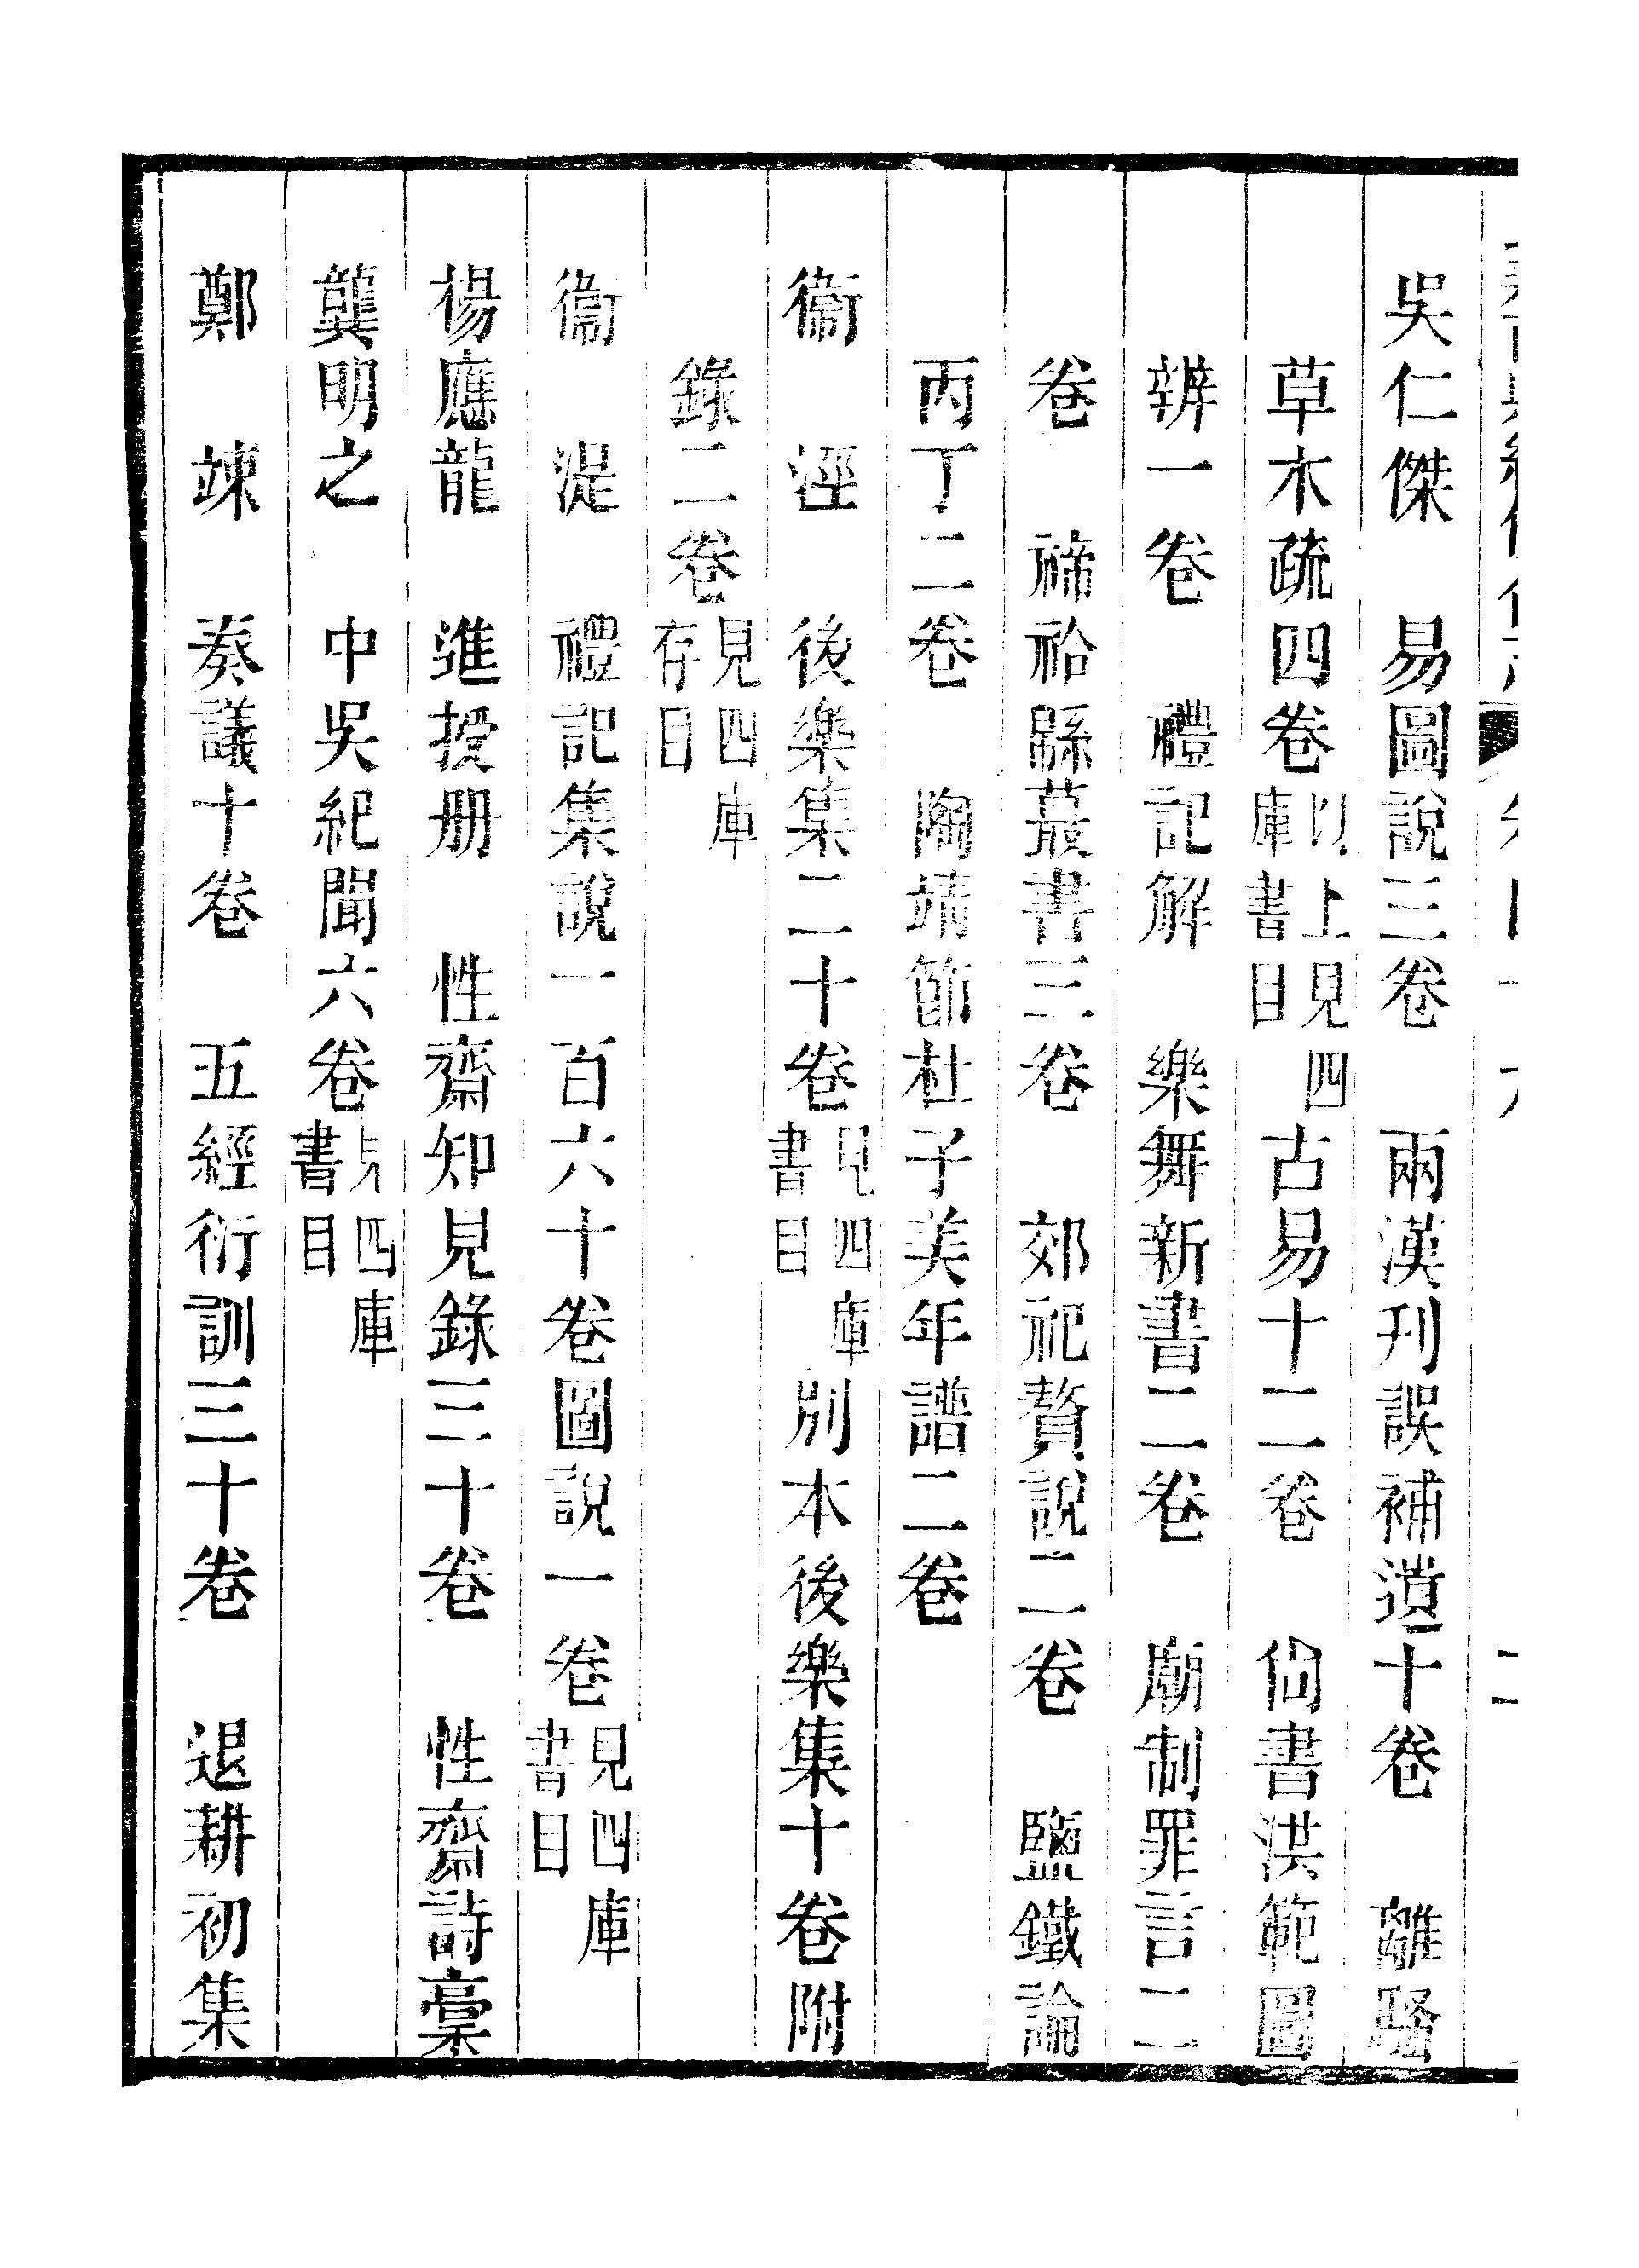 吳仁傑　易圖說三卷　兩漢刊誤補遺十卷　離騷
草木疏四卷以上見四庫書目古易十二卷　尙書洪範圖
辨一卷　禮記解　樂舞新書二卷　廟制罪言二
卷　禘祫緜蕞書三卷　郊祀贅說二卷　鹽鐵論
丙丁二卷　陶靖節杜子美年譜二卷
衞　涇　後樂集二十卷見四庫書目別本後樂集十卷附
錄二卷見四庫存目
衞　湜　禮記集說一百六十卷圖說一卷見四庫書目
楊應龍　進授册　性齋知見錄三十卷　性齋詩稾
龔明之　中吳紀聞六卷見四庫書目
鄭　竦　奏議十卷　五經衍訓三十卷　退耕初集